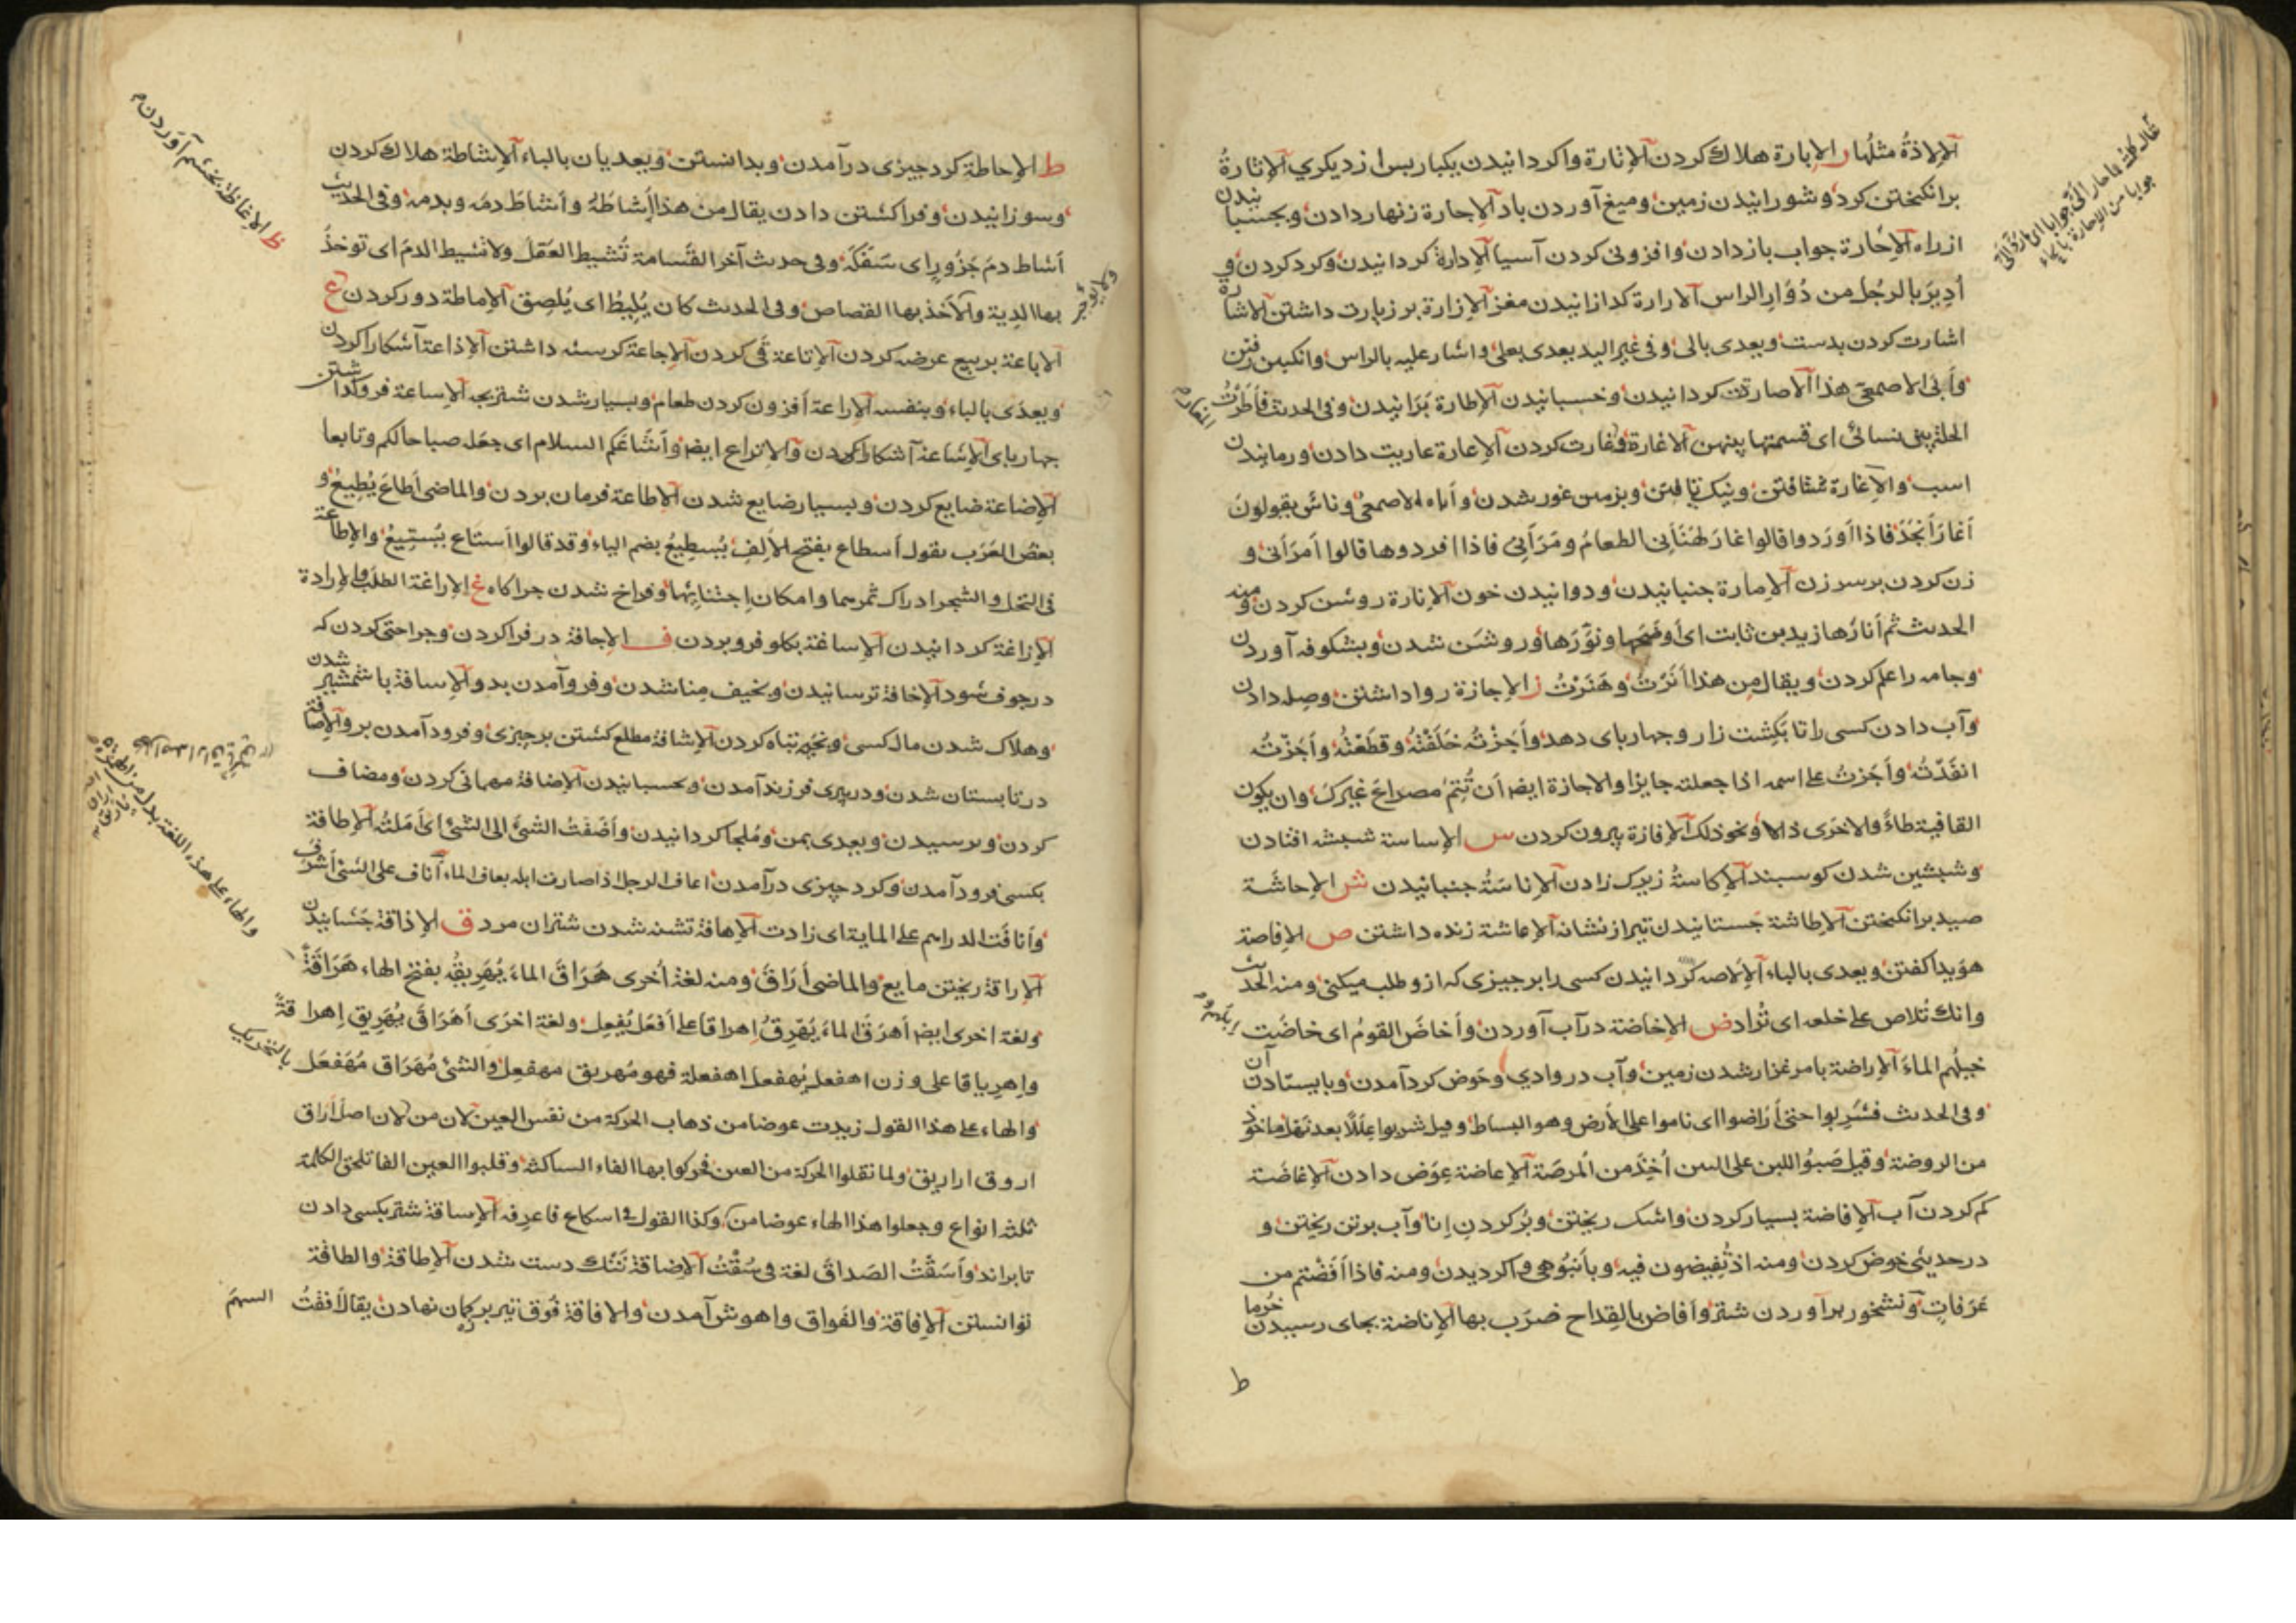 الإلاذةُ مثلُها ر الإبارة هلاك كردن الإتارة واكردانيدن يكبار بس از ديكري الإثارةُ
برانكيختن كرد و شورانيدن زمين وميغ آوردن باد الإجارة زنهار دادن وبجسبانيدن
از راه الإحارة جواب باز دادن وافزونى كردن آسيا الإدارة كردانيدن وكرد كردن و
أُدِيرَ بالرجُل من دُوَارِ الراس الارارة كدازانيدن مغز الإزارة بر زيارت داشتن الاشارة
اشارت كردن بدست ويعدى بالى وفى غير اليد يعدى بعلى واشار عليه بالراى وانكبين رفتن
وأبى الاصمعى هذا الاصارة كردانيدن وخسبانيدن الإطارة پرانيدن وفى الحديث فأطَرْتُ
الحلة بين نسائى اى قسمتها بينهن الاغارة وغارت كردن الإعارة عاريت دادن ورمانيدن
اسب والإغارة شتافتن ونيك تافتن وبزمين غور شدن وأباه الاصمعى وناس يقولون
أغارَ وأنجَدَ فاذا أفردوا قالوا غارَ كهَنَأنِى الطعامُ ومَرَأنِى فاذا افردوها قالوا أمرَأنى و
زن كردن بر سر زن الإمارة جنبانيدن ودوانيدن خون الإنارة روشن كردن ومنه
الحديث ثم أنارَها زيد بن ثابت اى أوضَحَها ونَوَّرَها وروشن شدن وبشكوفه آوردن
وجامه را علم كردن ويقال مِن هذا أنَرْتُ وهَنَرْتُ ز الإجازة روا داشتن وصِله دادن
وآب دادن كسى را تا بكِشت زار وجهارباى دهد وأجَزْتُه خَلَفْتُهُ وقطَعْتُهُ وأجَزْتُه
انفَذتُه وأجَزتُ على اسمه اذا جعلته جايزا والاجازة ايضا أن تُتِمَّ مصراعَ غيرِكَ وان يكون
القافية طاءً والاخرى دالا ونحو ذلك الإفازة پيرون كردن س الإساسة شبشه افتادن
وشبشين شدن كوسبند الإكاسةُ زيرك زادن الإناسَةُ جنبانيدن ش الإحاشَة
صيد برانكيختن الإطاشة جَستانيدن تير از نشانه الإعاشة زنده داشتن ص الإفاصة
هويدا كفتن ويعدى بالباء الإلاصه كردانيدن كسى را بر جيزى كه ازو طلب ميكنى ومنه الحديث
وانك تُلاص على خلعه اى تُراد ض الإخاضة در آب آوردن وأخاضَ القومُ اى خاضَت
خيلُهم الماءَ الإراضة با مرغزار شدن زمين وآب در وادي وحَوض كرد آمدن وبايستادن آن
وفى الحديث فشَرِبوا حتى أراضوا اى ناموا على الأرض وهو البساط وقيل شربوا عَلَلاً بعد نَهَل ماخوذ
من الروضة وقيل صَبُوا اللبن على اللبن أُخِذَ من المُرِضَّة الإعاضة عِوَض دادن الإغاضَة
كم كردن آب الإفاضة بسيار كردن واشك ريختن وپُر كردنِ إنا وآب بر تن ريختن و
در حديثى خوض كردن ومنه اذ تُفِيضون فيه وبأنبُوهى واكرديدن ومنه فاذا أفَضْتم من
عَرَفاتٍ ونشخور برآوردن شتر وأفاض بالقِداح ضرَب بها الإناضة بجاى رسيدن خُرما
ط
جوابا من الإحارة بالحاء
ط الإحاطة كرد جيزى درآمدن وبدانستن ويعديان بالباء الإشاطة هلاك كردن
وسوزانيدن وفرا كشتن دادن يقال من هذا أشاطَهُ وأشاطَ دمَه وبدمه وفى الحديث
أشاط دمَ جَزُورٍ اى سَفَكَه وفى حديث آخر القَسامة تُشيط العَقلَ ولا تُشيط الدمَ اى توخَذُ
بها الدِية ولا توخذ بها القصاص وفى الحديث كان يُلِيطُ اى يُلصِق الإماطة دور كردن ع
الإباعة بر بيع عرضه كردن الإتاعة قَى كردن الإجاعة كرسنه داشتن الإذاعة آشكارا كردن
ويعدى بالباء وبنفسه الإراعة أفزون كردن طعام وبسيار شدن شتر بچه الإساعة فرو كذاشتن
جهارباى الإشاعة آشكارا كردن والإتراع ايضا وأشاعَكم السلام اى جعَله صباحا لكم وتابعا
الإضاعة ضايع كردن وبسيار ضايع شدن الإطاعة فرمان بردن والماضى أطاعَ يُطِيعُ و
بعض العَرَب يقول أسطاع بفتح الألِفِ يُسطِيعُ بضم الياء وقد قالوا أستَاع يُستِيعُ والإطاعة
فى النخل والشجر ادراك ثمرهما وامكان اجتنائها وفراخ شدن چراكاه غ الإراغة الطلَب والإرادة
الإزاغة كردانيدن الإساغة بكلو فرو بردن ف الإجافة در فرا كردن وجراحتى كردن كه
در جوف شود الإخافة ترسانيدن ونحيف مِنا شدن وفرو آمدن بدو الإسافة با شمشير شدن
وهلاك شدن مال كسى ونخير تباه كردن الإشافة مطلع كشتن بر جيزى وفرود آمدن برو الإصافة
در تابستان شدن ودر پيرى فرزند آمدن وبحسبانيدن الإضافة مهمانى كردن ومضاف
كردن وبرسيدن ويعدى بمن ومُلجا كردانيدن وأضَفتُ الشئَ الى الشئ اى أملتُه الإطافة
بكسى فرود آمدن وكرد چيزى درآمدن اعاف الرجل اذا صارت ابله يعاف الماء أناف على الشئ أشرف
وأنافَت الدراهم على الماية اى زادت الإهافة تشنه شدن شتران مرد ق الإذاقة چَشانيدن
الإراقة ريختن مايع والماضى أرَاقَ ومنه لغة أُخرى هَرَاقَ الماءَ يُهَرِيقُه بفتح الهاء هَرَاقَةً
ولغة اخرى ايضا أهرَقَ الماءَ يُهرِقُ إهراقا على أفعَل يُفعِل ولغة اخرَى أهرَاقَ يُهرِيق إهراقةً
وإهرِياقا على وزن اهفعل يُهفعل اهفعلة فهو مُهريق مهفعِل والشئ مُهَرَاق مُهَفعَل بالتحريك
والهاء على هذا القول زيدت عوضا من ذهاب الحركة من نفس العين لان من لان اصل أراق
اروق او اريق ولما نقلوا الحركة من العين فحركوا بها الفاء الساكنة وقلبوا العين الفا تلحق الكلمة
ثلثة انواع وجعلوا هذا الهاء عوضا من وكذا القول فى اسكاع فاعرفه الإساقة شتر بكسى دادن
تا براند وأسَقتُ الصَداقَ لغة فى سُقْتُ الإضاقة تَنك دست شدن الإطاقة والطاقة
توانستن الإفاقة والفَواق واهوش آمدن والافاقة فُوق تير بر كمان نهادن يقال أفقْتُ السهمَ
ظ الإغاظة بخشم آوردن
والهاء على هذه اللغة بدل من الهمزة